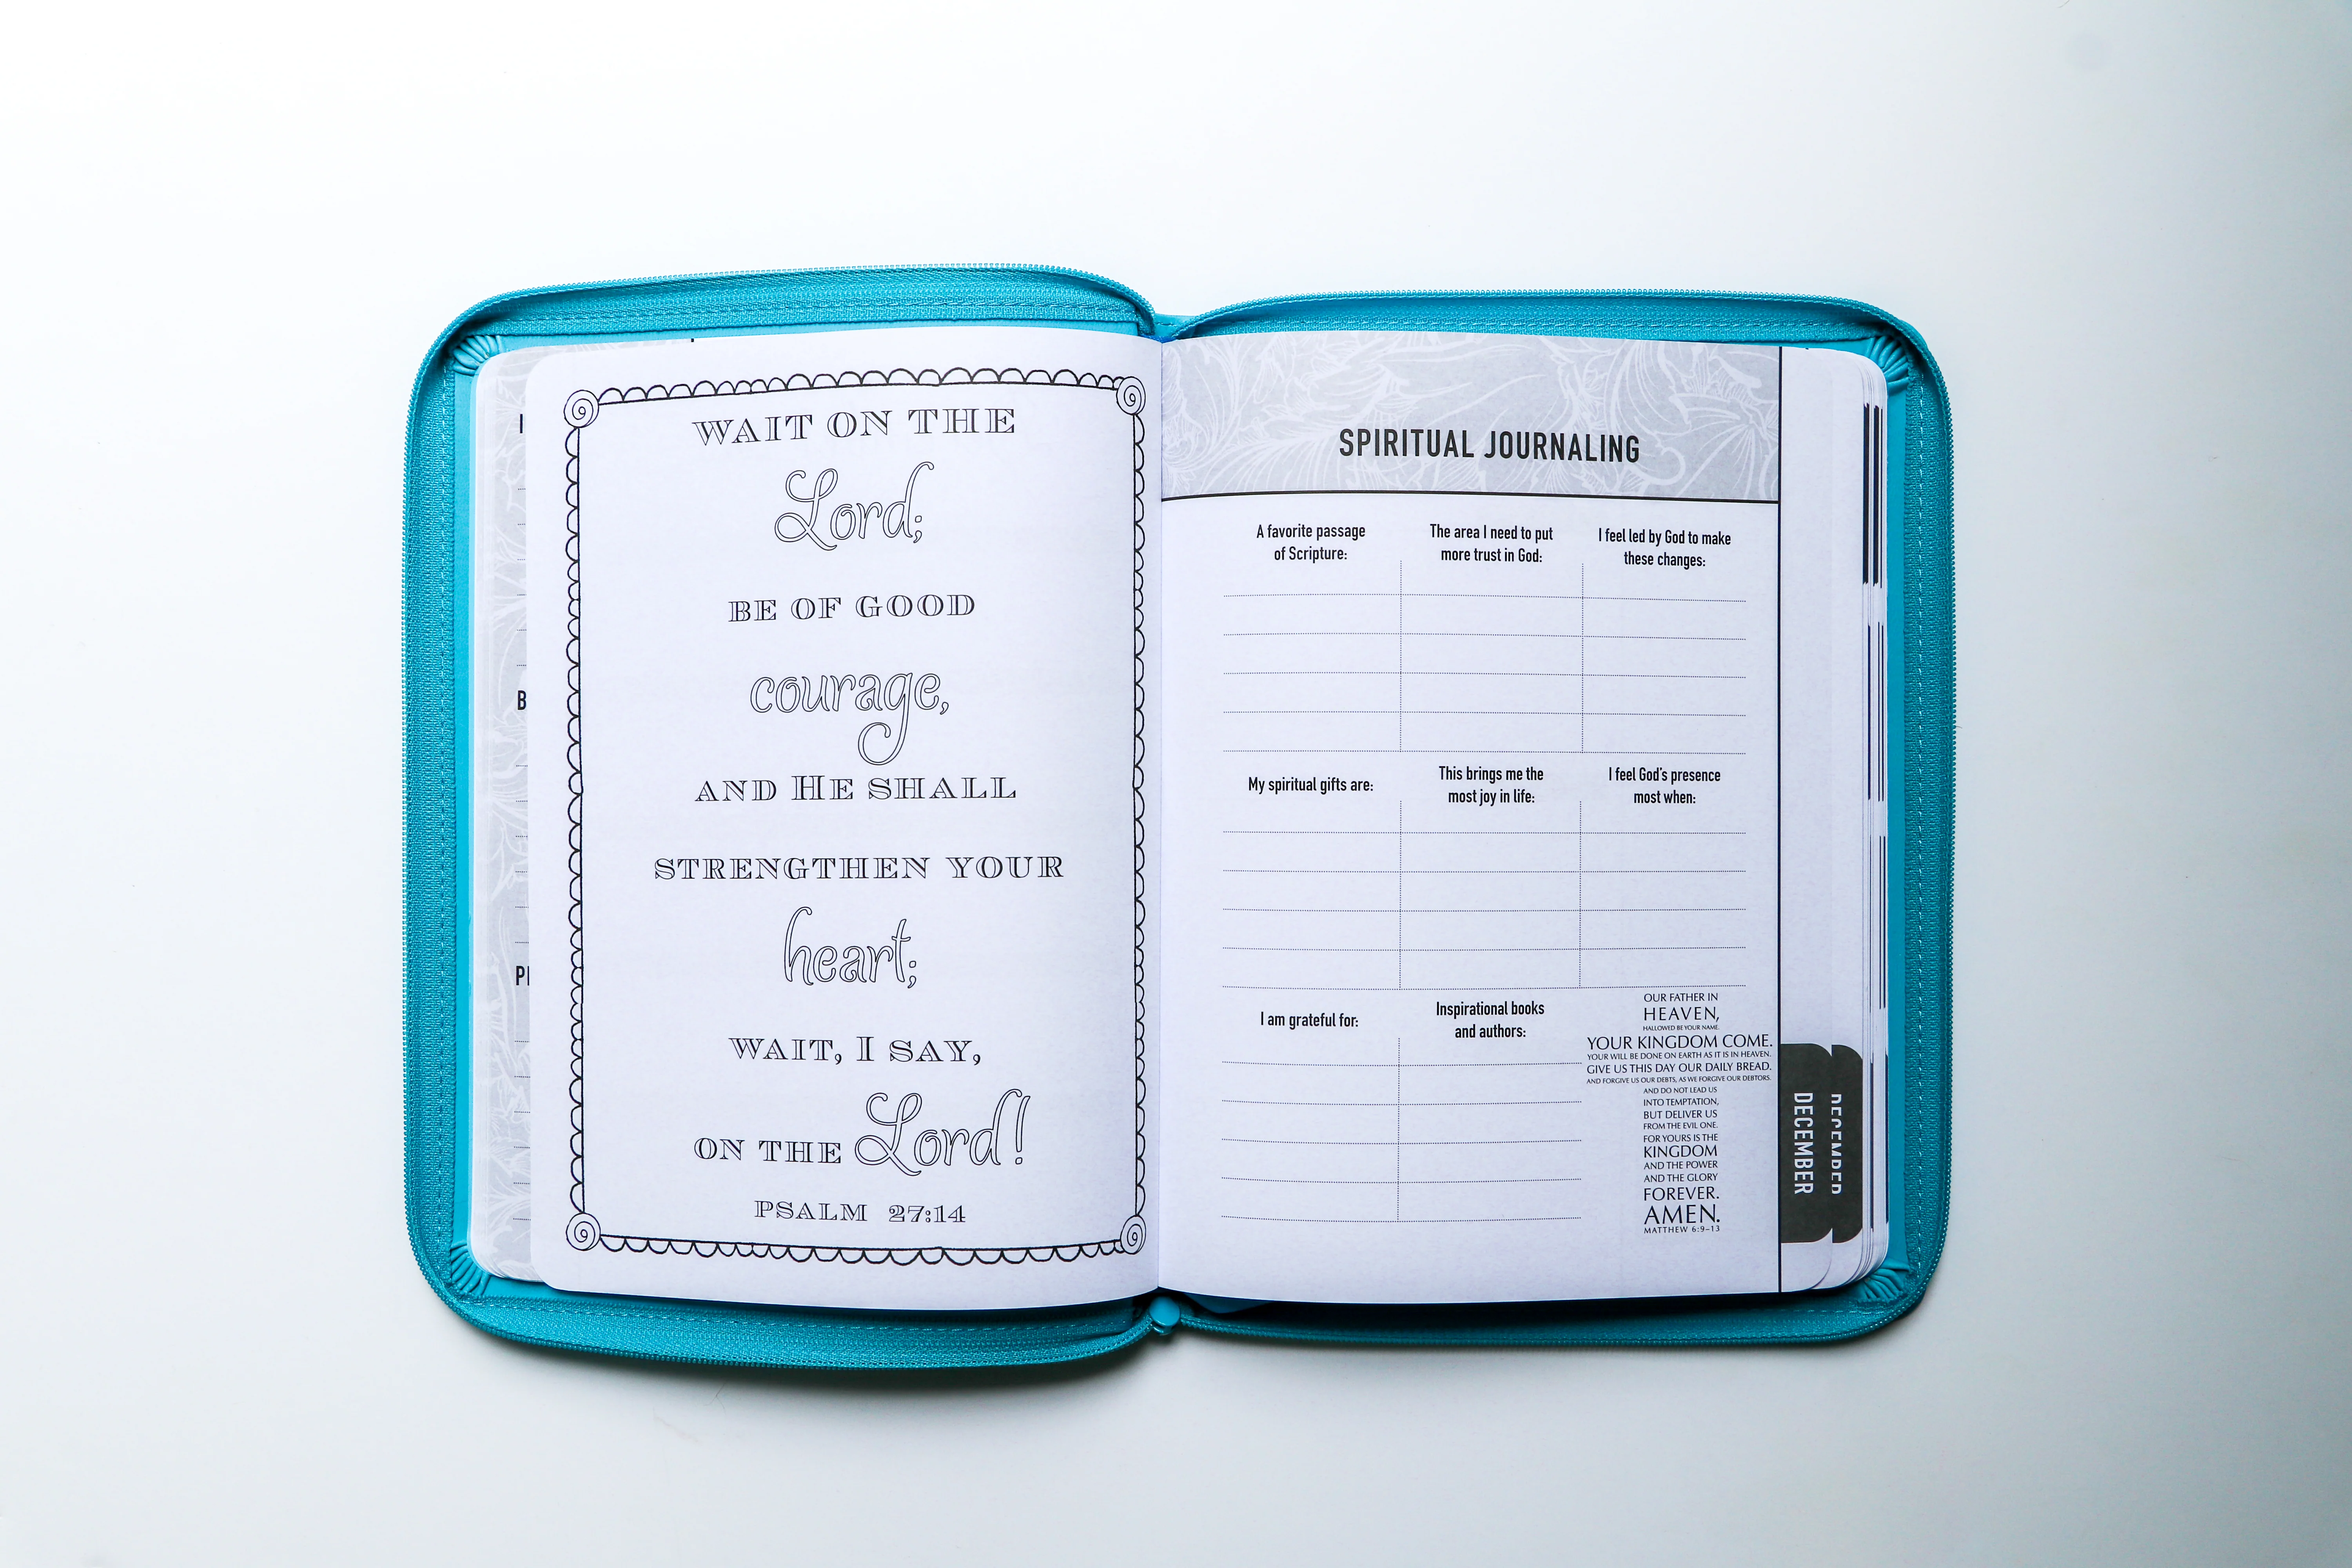 WAIT ON THE
Lord;
BE OF GOOD
courage,
AND HE SHALL
STRENGTHEN YOUR
heart;
WAIT, I SAY,
ON THE Lord!
PSALM 27:14
SPIRITUAL JOURNALING
A favorite passage
of Scripture:
The area I need to put
more trust in God:
I feel led by God to make
these changes:
My spiritual gifts are:
This brings me the
most joy in life:
I feel God's presence
most when:
I am grateful for:
Inspirational books
and authors:
OUR FATHER IN
HEAVEN,
HALLOWED BE YOUR NAME.
YOUR KINGDOM COME.
YOUR WILL BE DONE ON EARTH AS IT IS IN HEAVEN.
GIVE US THIS DAY OUR DAILY BREAD.
AND FORGIVE US OUR DEBTS, AS WE FORGIVE OUR DEBTORS.
AND DO NOT LEAD US
INTO TEMPTATION,
BUT DELIVER US
FROM THE EVIL ONE.
FOR YOURS IS THE
KINGDOM
AND THE POWER
AND THE GLORY
FOREVER.
AMEN.
MATTHEW 6:9–13
DECEMBER
DECEMBER